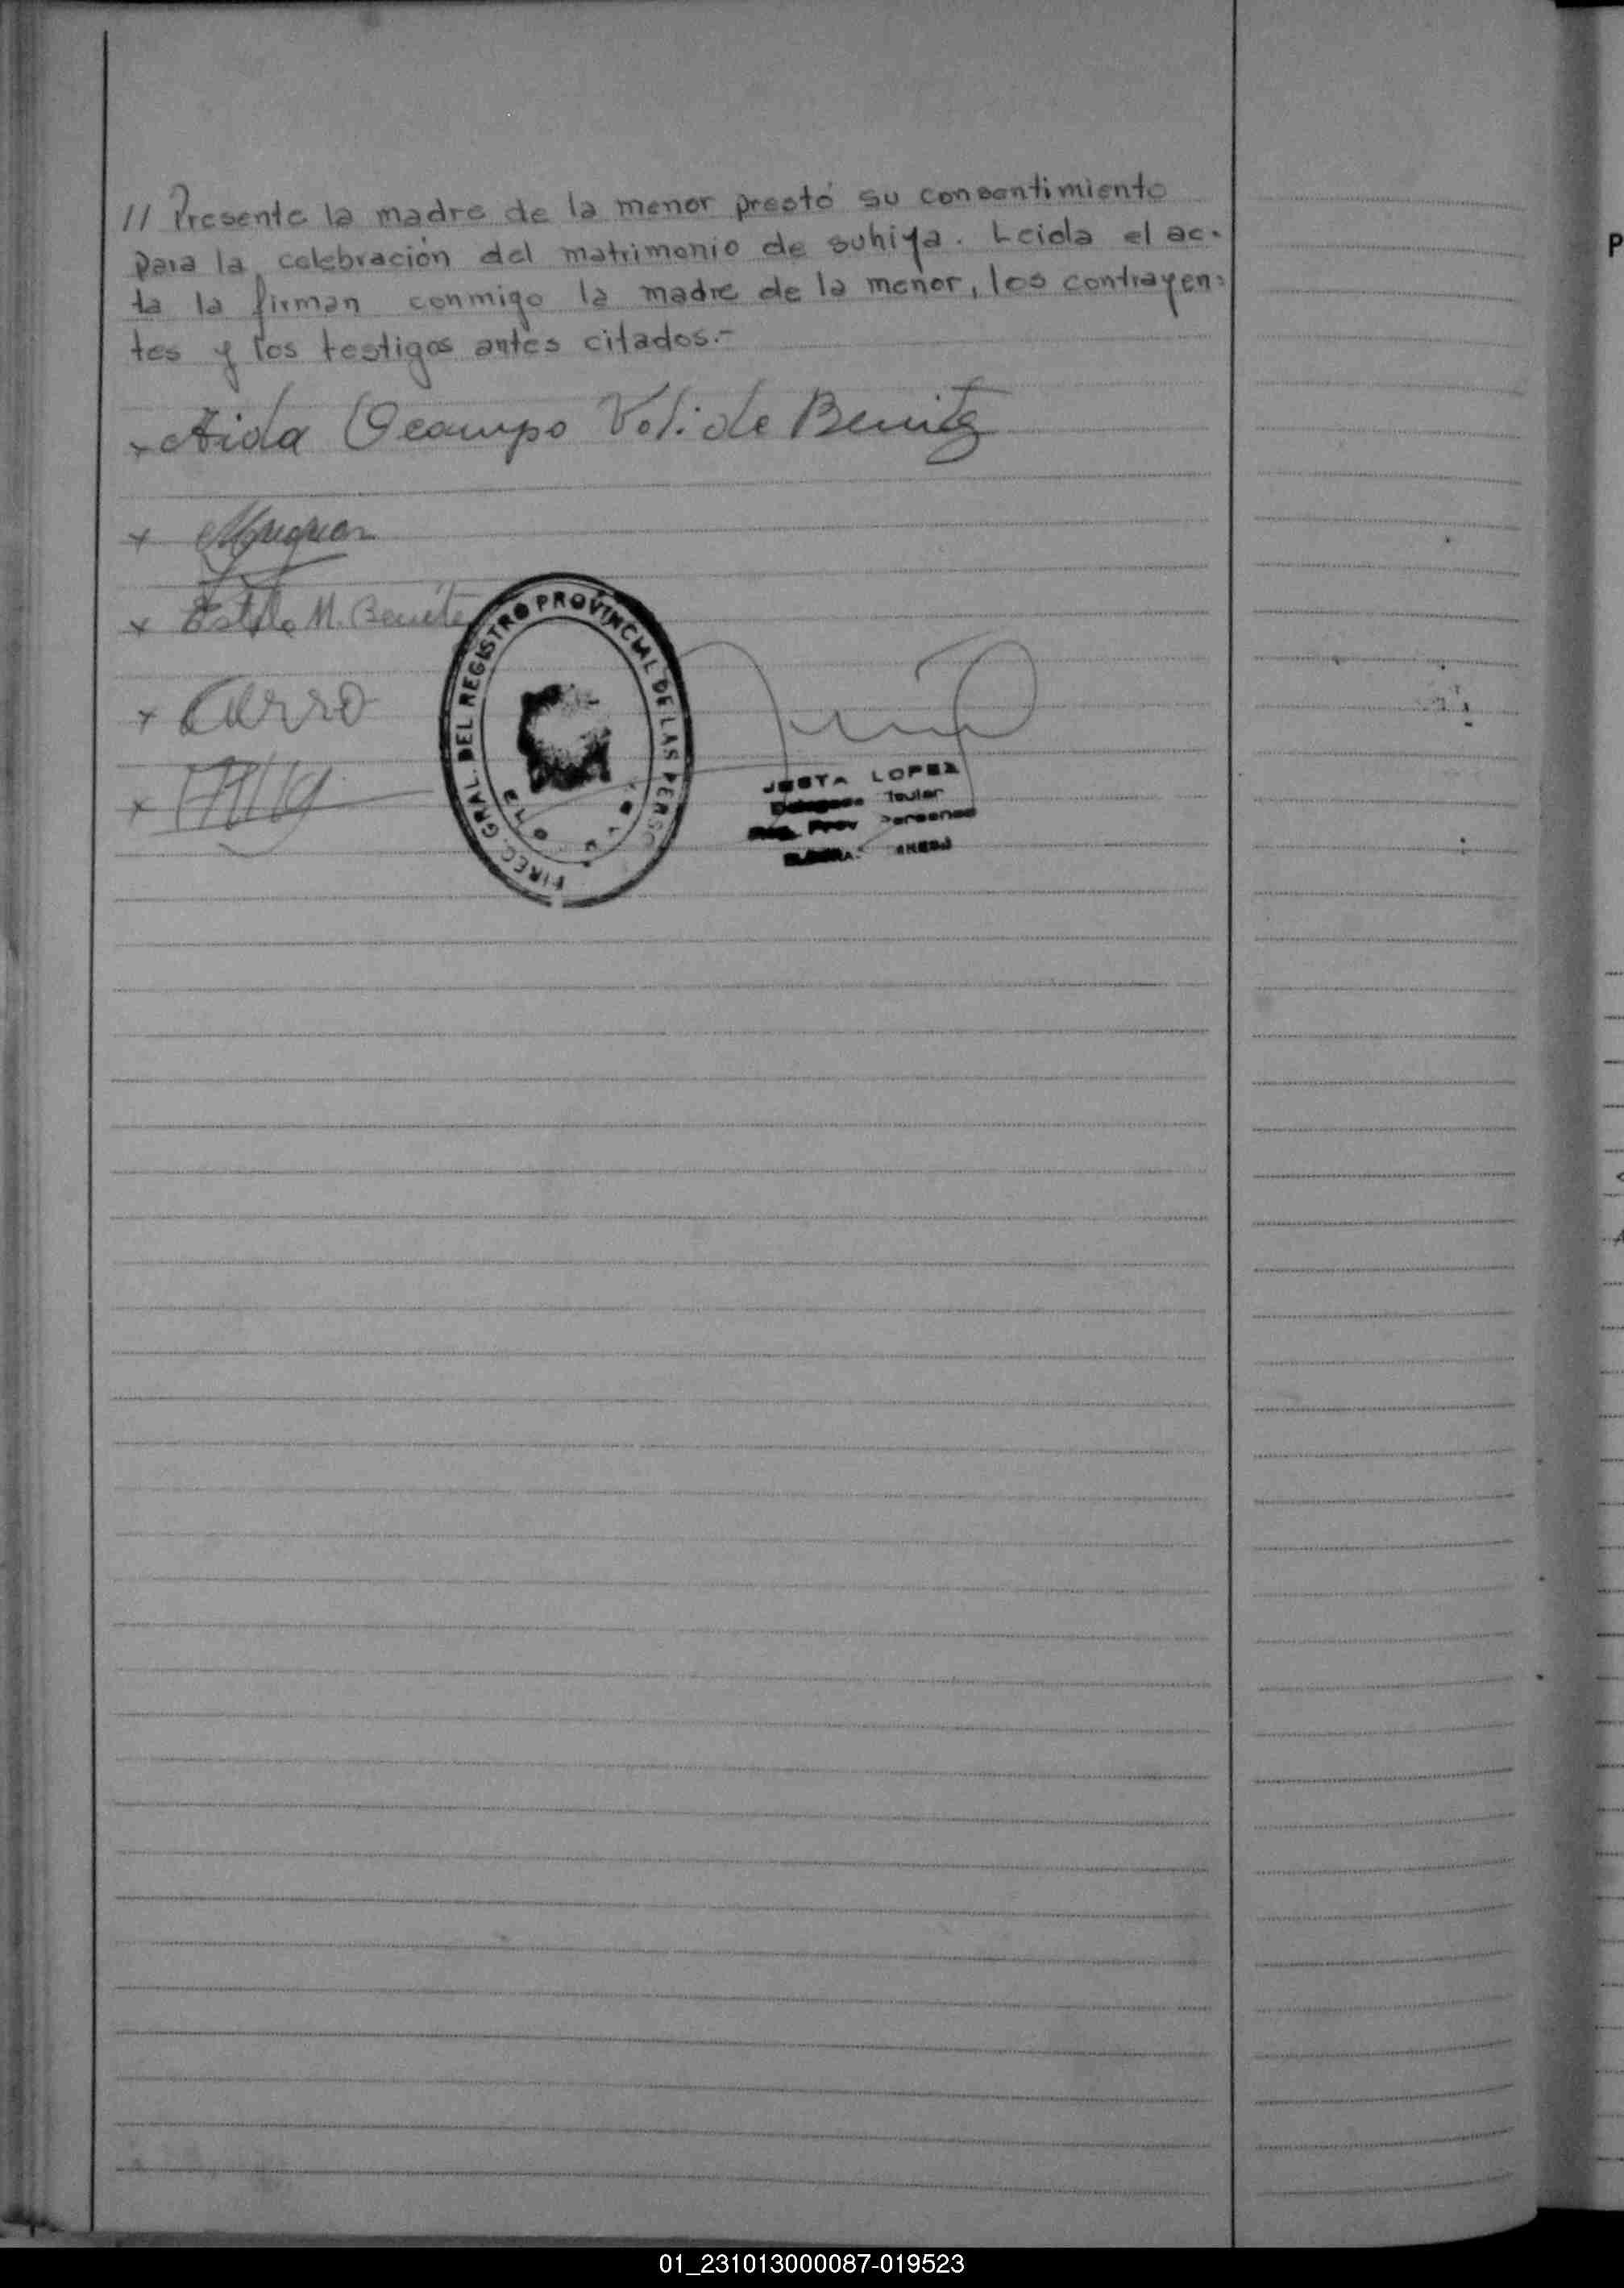 // Presente la madre de la menor prestó su consentimiento
para la celebración del matrimonio de suhiya. Leida el ac-
ta la firman conmigo la madre de la menor, los contrayen=
tes y los testigos antes citados.-
x Aida Ocampo Vd. de Benitz
x
x Estela M. Benite
x Carro
x
DIREC. GRAL. DEL REGISTRO PROVINCIAL DE LAS PERSO
LOPEZ
Titular
Prov Personas
P
01_231013000087-019523